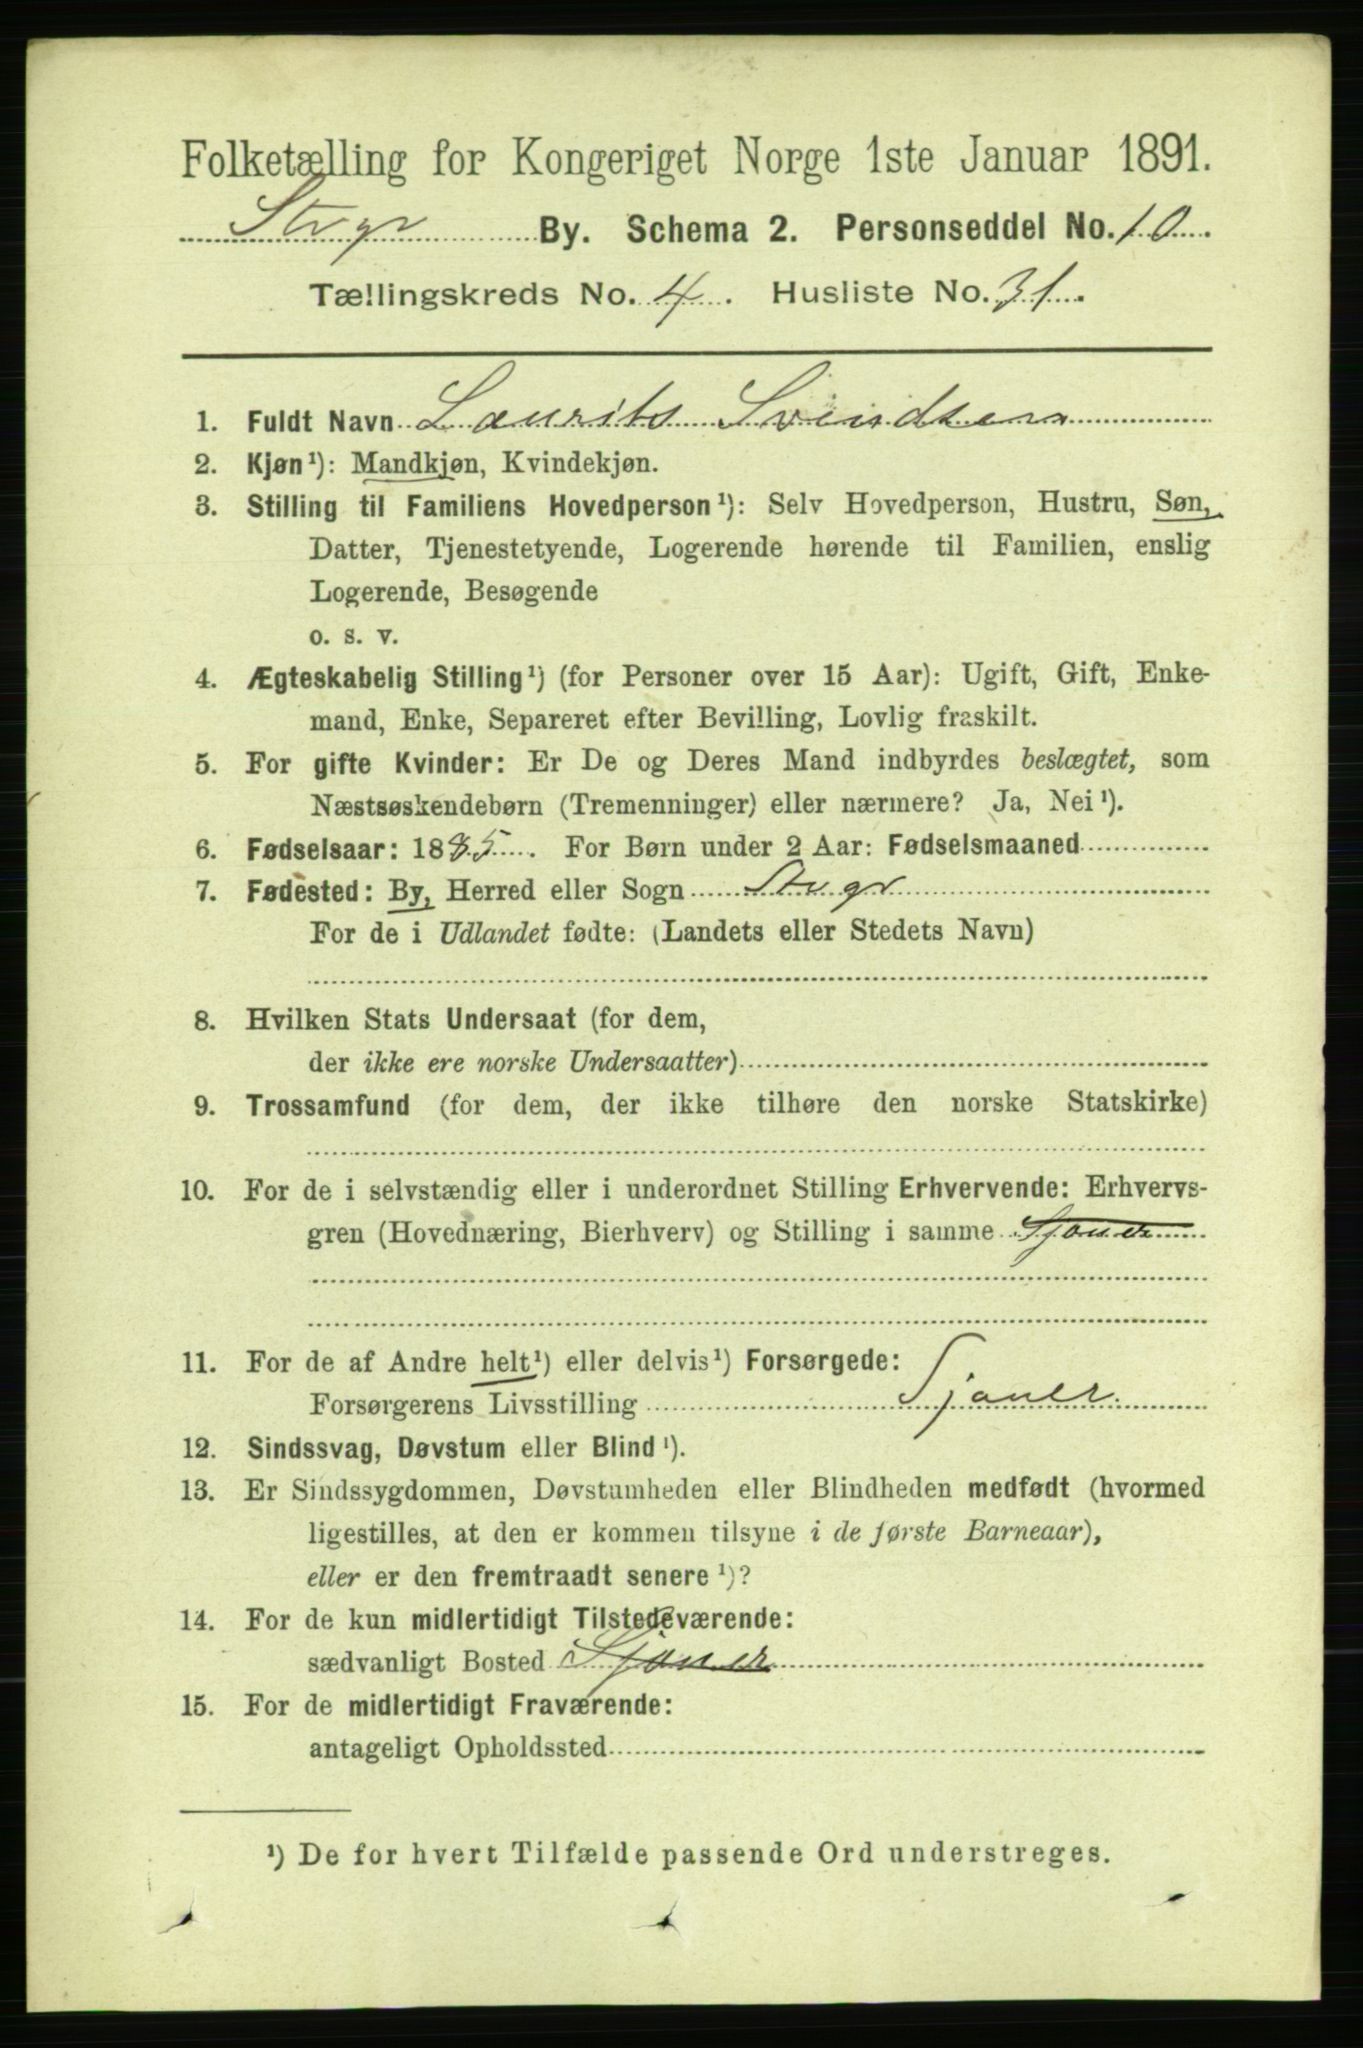 Folketælling for Kongeriget Norge 1ste Januar 1891.
Stvgr By. Schema 2. Personseddel No. 10.
Tællingskreds No. 4. Husliste No. 31.
1. Fuldt Navn Laurits Svendsen
2. Kjøn¹): Mandkjøn, Kvindekjøn.
3. Stilling til Familiens Hovedperson¹): Selv Hovedperson, Hustru, Søn,
Datter, Tjenestetyende, Logerende hørende til Familien, enslig
Logerende, Besøgende
o. s. v.
4. Ægteskabelig Stilling¹) (for Personer over 15 Aar): Ugift, Gift, Enke-
mand, Enke, Separeret efter Bevilling, Lovlig fraskilt.
5. For gifte Kvinder: Er De og Deres Mand indbyrdes beslægtet, som
Næstsøskendebørn (Tremenninger) eller nærmere? Ja, Nei¹).
6. Fødselsaar: 1885. For Børn under 2 Aar: Fødselsmaaned
7. Fødested: By, Herred eller Sogn Stvgr
For de i Udlandet fødte: (Landets eller Stedets Navn)
8. Hvilken Stats Undersaat (for dem,
der ikke ere norske Undersaatter)
9. Trossamfund (for dem, der ikke tilhøre den norske Statskirke)
10. For de i selvstændig eller i underordnet Stilling Erhvervende: Erhvervs-
gren (Hovednæring, Bierhverv) og Stilling i samme Sjouer
11. For de af Andre helt¹) eller delvis¹) Forsørgede:
Forsørgerens Livsstilling Sjouer.
12. Sindssvag, Døvstum eller Blind¹).
13. Er Sindssygdommen, Døvstumheden eller Blindheden medfødt (hvormed
ligestilles, at den er kommen tilsyne i de første Barneaar),
eller er den fremtraadt senere¹)?
14. For de kun midlertidigt Tilstedeværende:
sædvanligt Bosted Sjouer
15. For de midlertidigt Fraværende:
antageligt Opholdssted
¹) De for hvert Tilfælde passende Ord understreges.